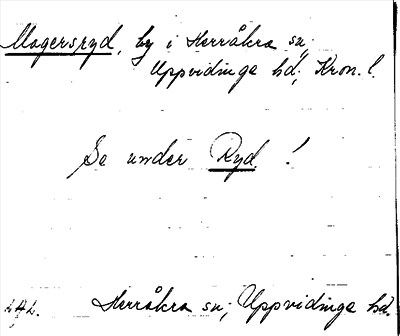 Mogersryd, by i Herråkra sn,
Uppvidinge hd, Kron. l.
Se under Ryd !
Herråkra sn, Uppvidinge hd.